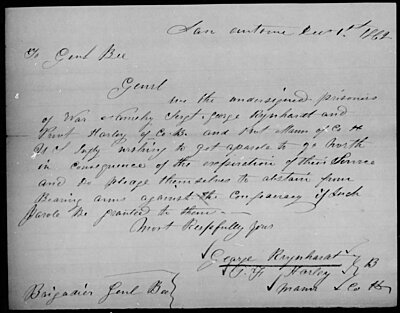 San Antonio Dec 1st 1862
To Genl Bee
Genrl
we the undersigned prisoners
of War Namely Sergt George Rynhardt and
Privt Harley of Co B. and Priv Mann of Co H
U S Infty wishing to get a parole to go North
in consequence of the expiration of their Service
and do pledge themselves to abstain from
Bearing arms against the Confederacy if such
Parole be granted to them
Most Respfully Yours
George Rynhardt
Harley } B
Mann } Co H
Brigadier Genl Bee }